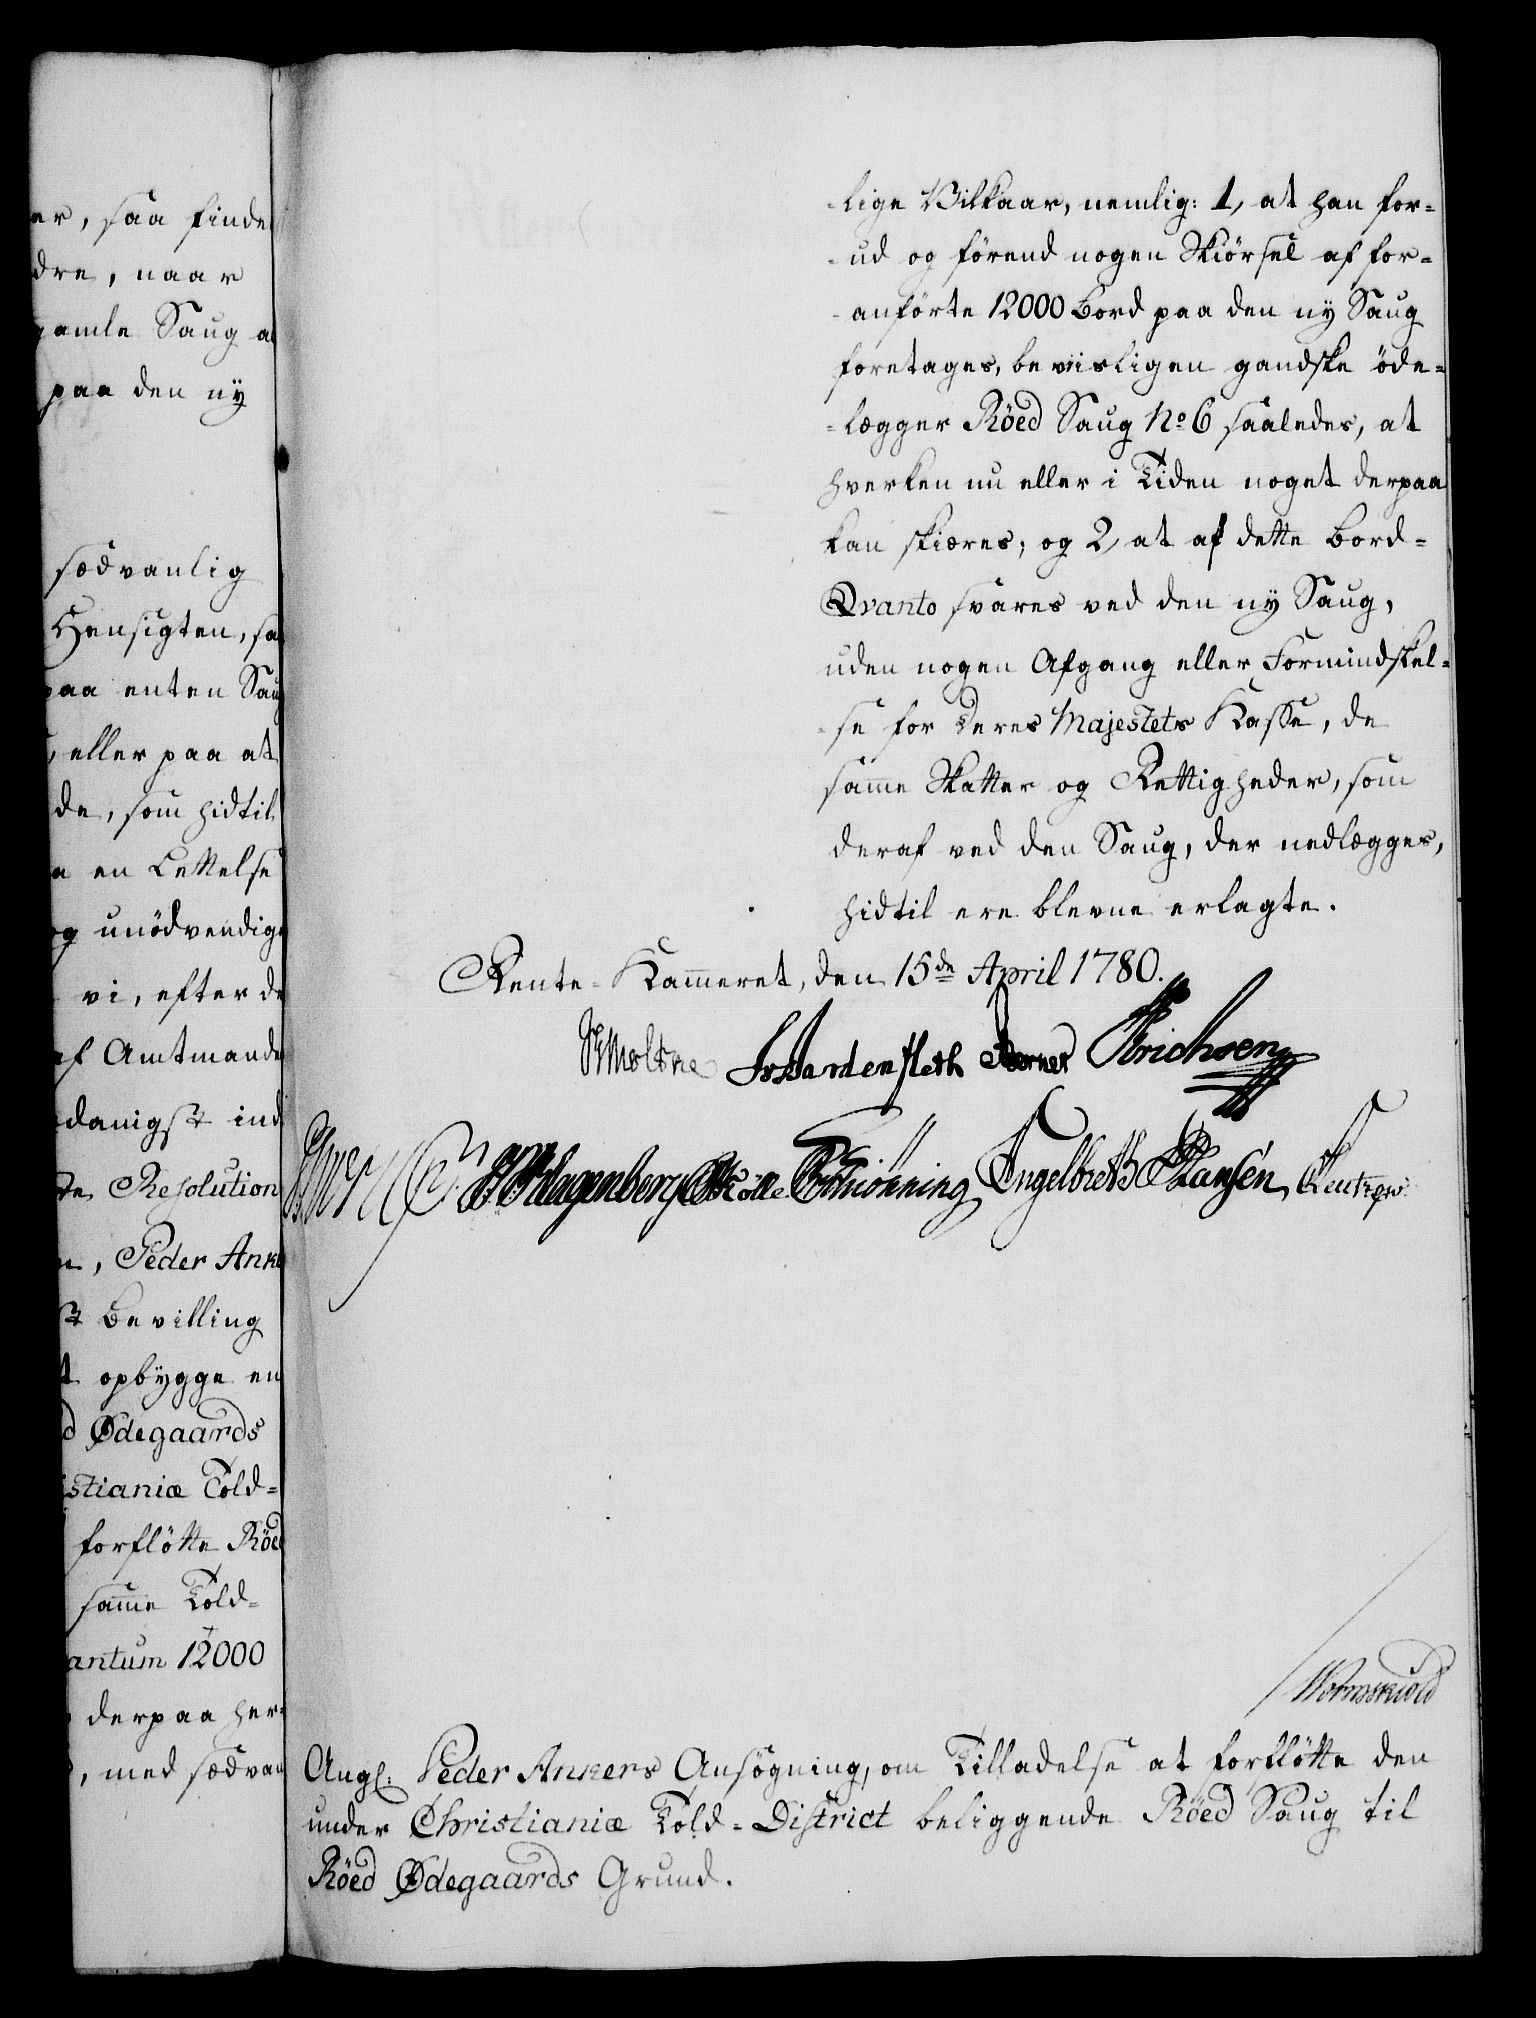 er, saa finde
dre, naar
gamle Saug a
paa den nÿ
sædvanlig
Hensigten, sa
paa enten Saug
, eller paa at
de, som hidtil
a en Lettelse
og unödvendige
vi, efter de
af Amtmande
danigst ind
te Resolution
n, Peder Anke
st Bevilling
t opbÿgge en
d Ødegaards
istianiæ Told-
forflötte Röed
samme Told-
antum 12000
derpaa her-
, med sædvan
-lige Vilkaar, nemlig: 1, at han for-
-ud og förend nogen Skiörsel af for-
-anförte 12000 Bord paa den nÿ Saug
foretages, beviisligen gandske öde-
-lægger Röed Saug No 6 saaledes, at
hverken nu eller i Tiden noget derpaa
kan skiæres; og 2, at af dette Bord-
Qvanto svares ved den nÿ Saug,
uden nogen Afgang eller Formindskel-
-se for Deres Majestets Kasse, de
samme Skatter og Rettigheder, som
deraf ved den Saug, der nedlægges,
hidtil ere blevne erlagte.
Rente-Kammeret, den 15de April 1780.
Moltke Wardenskleth Berner Erichsen
Hagenberg Schiönning Engelbreth Hansen
Wormskiold
Angl: Peder Ankers Ansögning, om Tilladelse at forflötte den
under Christianiæ Told-District beliggende Röed Saug til
Röed Ødegaards Grund.